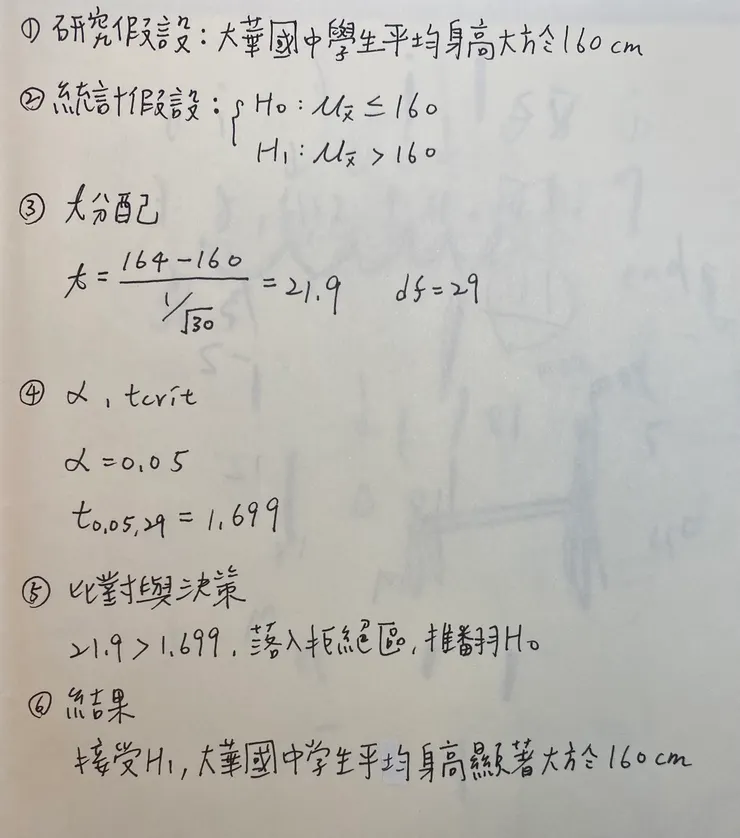 ① 研究假設：大華國中學生平均身高大於160cm
② 統計假設：{ H₀：μx̄ ≤ 160
H₁：μx̄ > 160
③ t分配
t = (164 − 160) / (1/√30) = 21.9 df = 29
④ α, tcrit
α = 0.05
t0.05,29 = 1.699
⑤ 比對與決策
21.9 > 1.699, 落入拒絕區, 推翻H₀
⑥ 結果
接受H₁, 大華國中学生平均身高顯著大於160cm